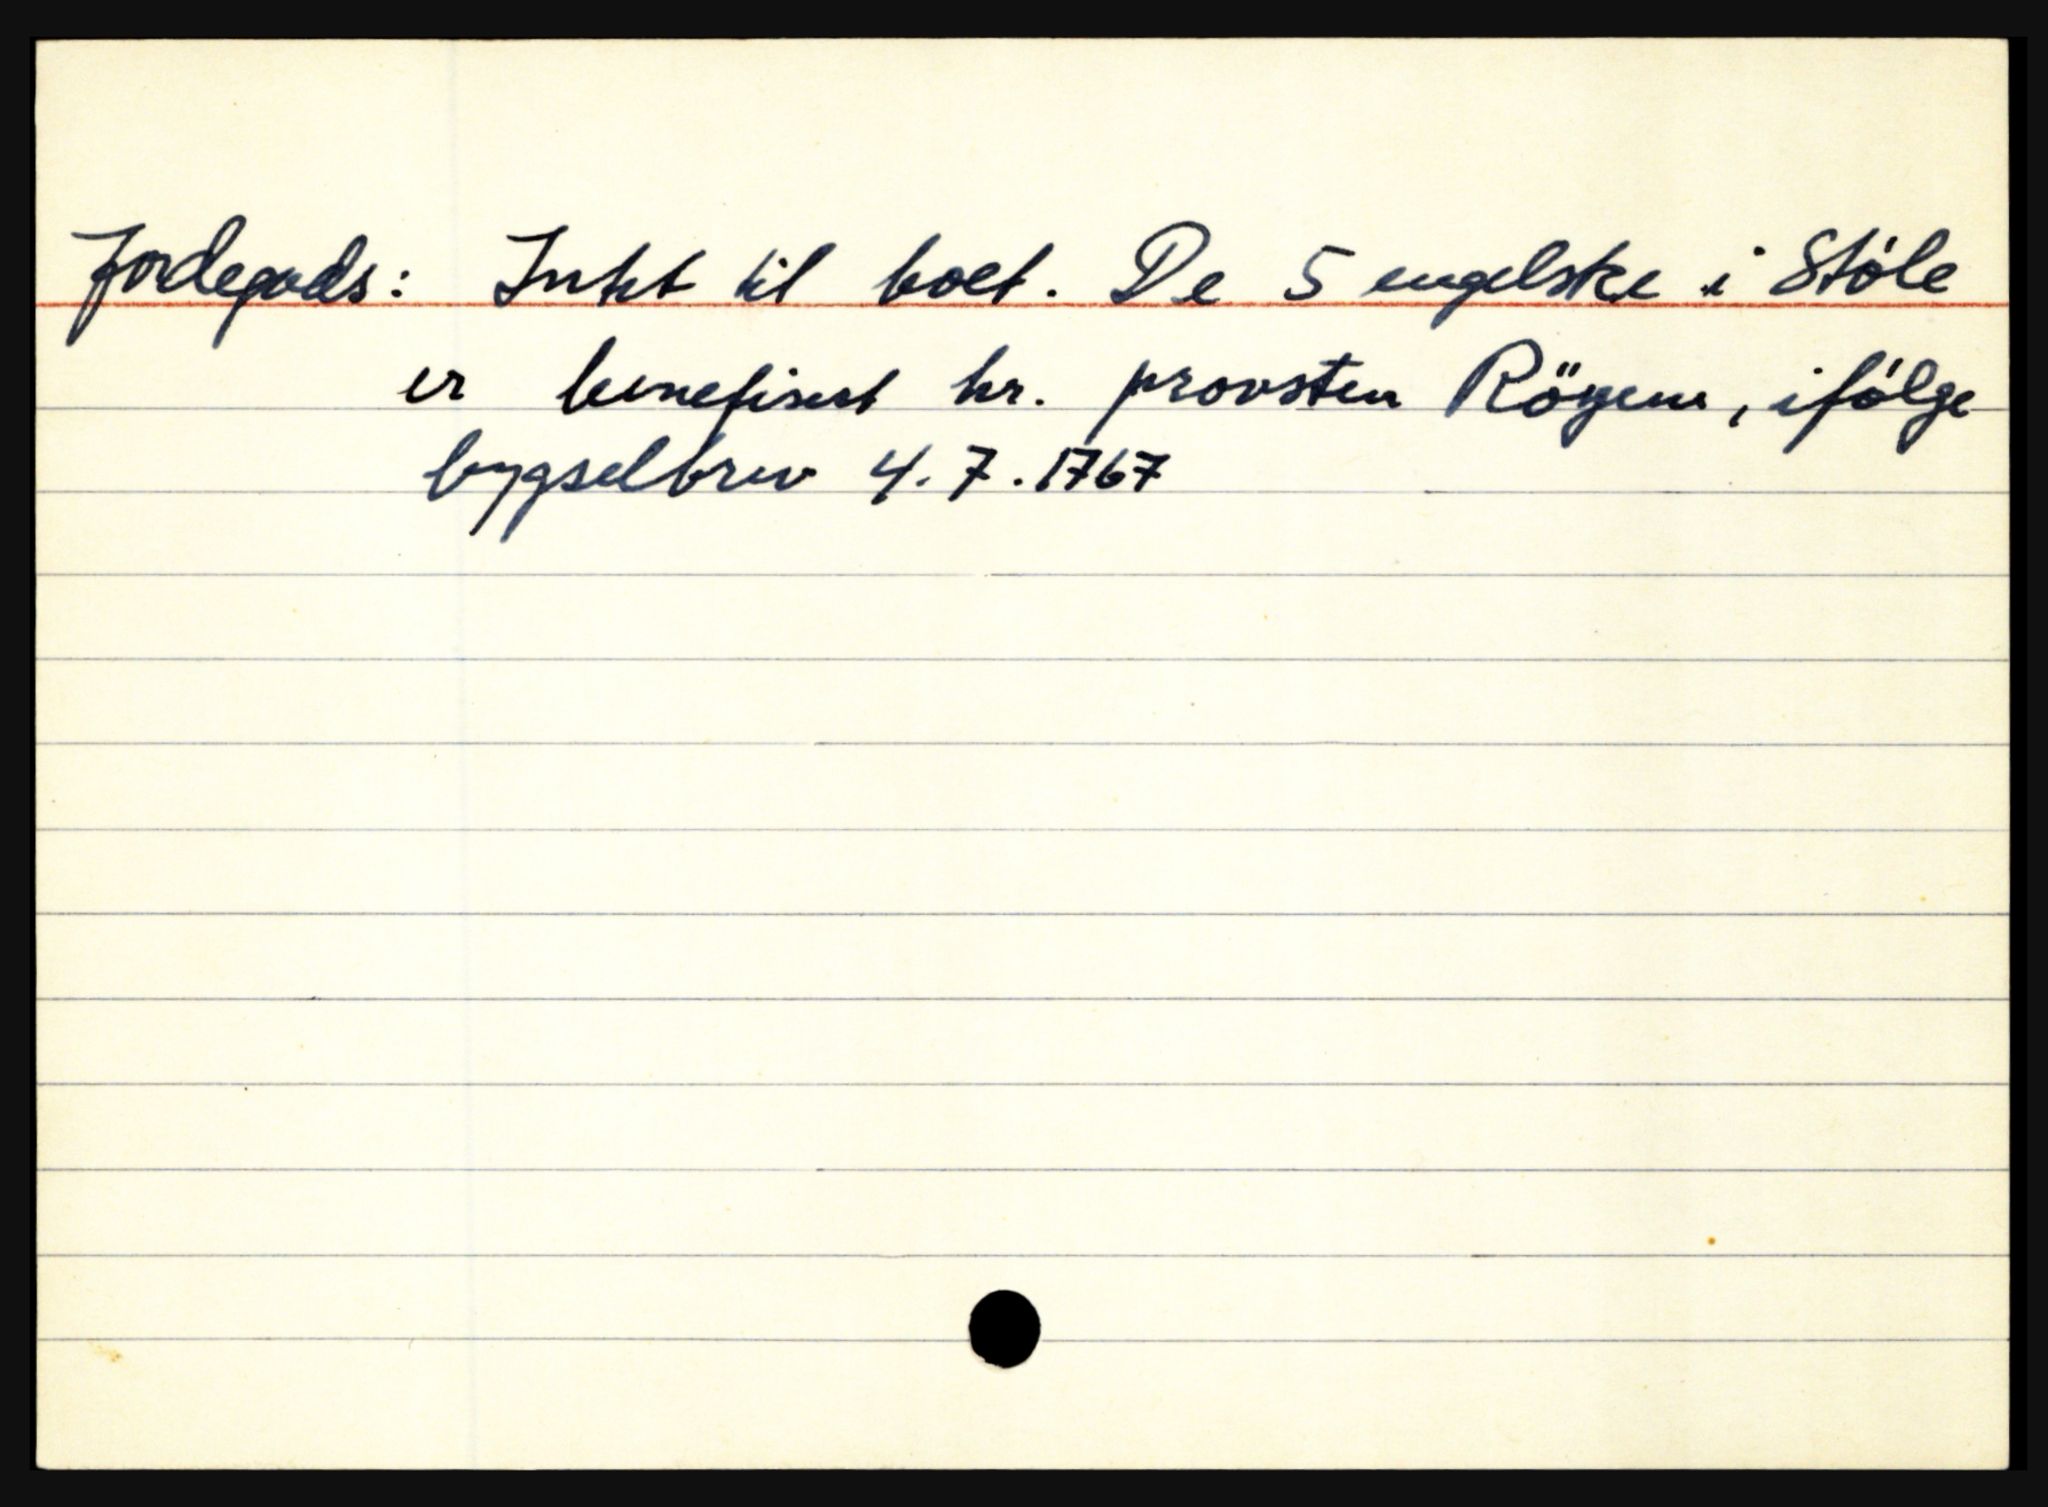 Jordegods: Intet til boet. De 5 engelske i Støle
er benefisert hr. provsten Röyem, ifølge
bygselbrev 4.7.1767